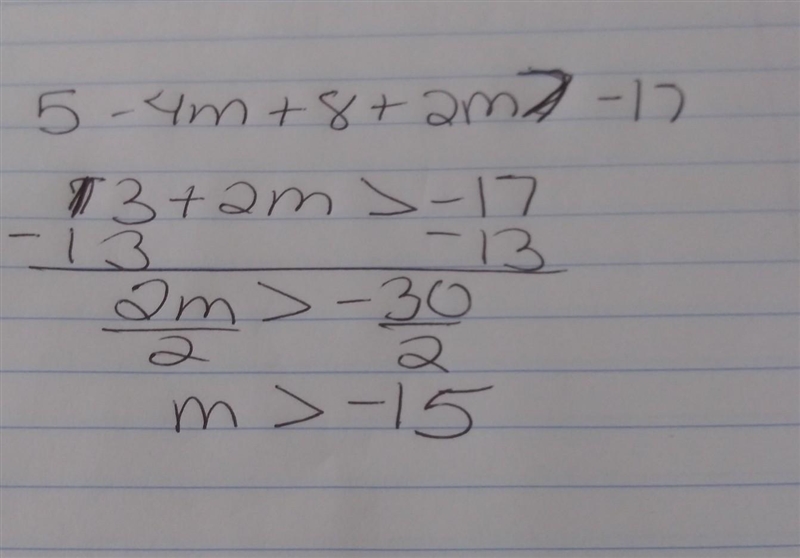 5 - 4m + 8 + 2m > -17
13 + 2m > -17
-13 -13
2m > -30
2 2
m > -15